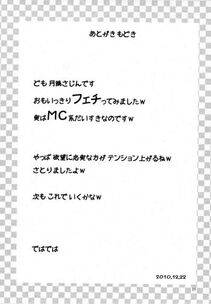 あとがきもどき
ども 月換さじんです
おもいっきりフェチってみましたw
実はMC系だいすきなのですw
やっぱ欲望に忠実な方がテンション上がるねw
さとりましたよw
次もこれでいくかなw
ではでは
2010.12.22